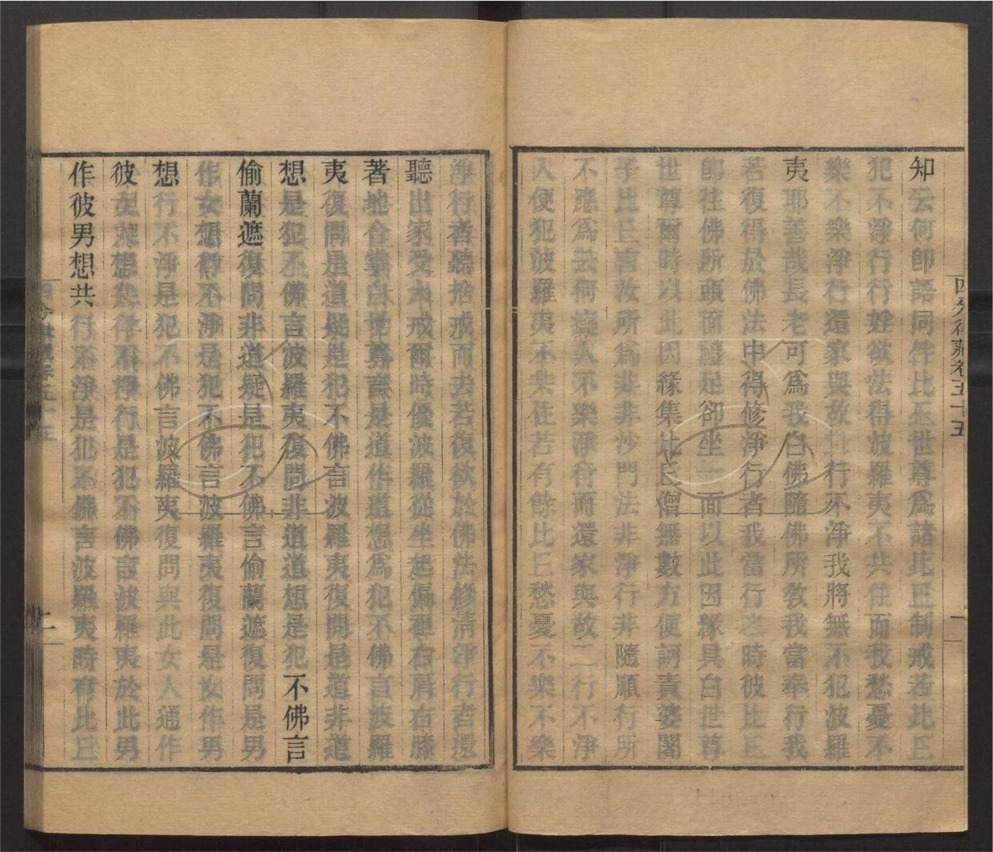 知云何即語同伴比丘世尊爲諸比丘制戒若比丘
犯不淨行行婬欲法得波羅夷不共住而我愁憂不
樂不樂淨行還家與故二行不淨我將無不犯波羅
夷耶善哉長老可爲我白佛隨佛所教我當奉行我
若復得於佛法中得修淨行者我當行之時彼比丘
即往佛所頭面禮足卻坐一面以此因緣具白世尊
世尊爾時以此因緣集比丘僧無數方便訶責婆闍
子比丘言汝所爲非非沙門法非淨行非隨順行所
不應爲云何癡人不樂淨行而還家與故二行不淨
入便犯波羅夷不共住若有餘比丘愁憂不樂不樂
四分律藏卷五十五
淨行者聽捨戒而去若復欲於佛法修清淨行者還
聽出家受大戒爾時優波羅從坐起偏袒右肩右膝
著地合掌白世尊言是道作道想爲犯不佛言波羅
夷復問是道疑是犯不佛言波羅夷復問是道非道
想是犯不佛言波羅夷復問非道道想是犯不佛言
偷蘭遮復問非道疑是犯不佛言偷蘭遮復問是男
作女想行不淨是犯不佛言波羅夷復問是女作男
想行不淨是犯不佛言波羅夷復問與此女人通作
彼女想共行不淨行是犯不佛言波羅夷於此男
作彼男想共行不淨是犯不佛言波羅夷時有比丘